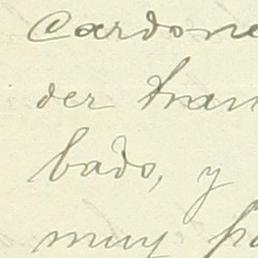 Cardone
der tran
bado, y
muy po